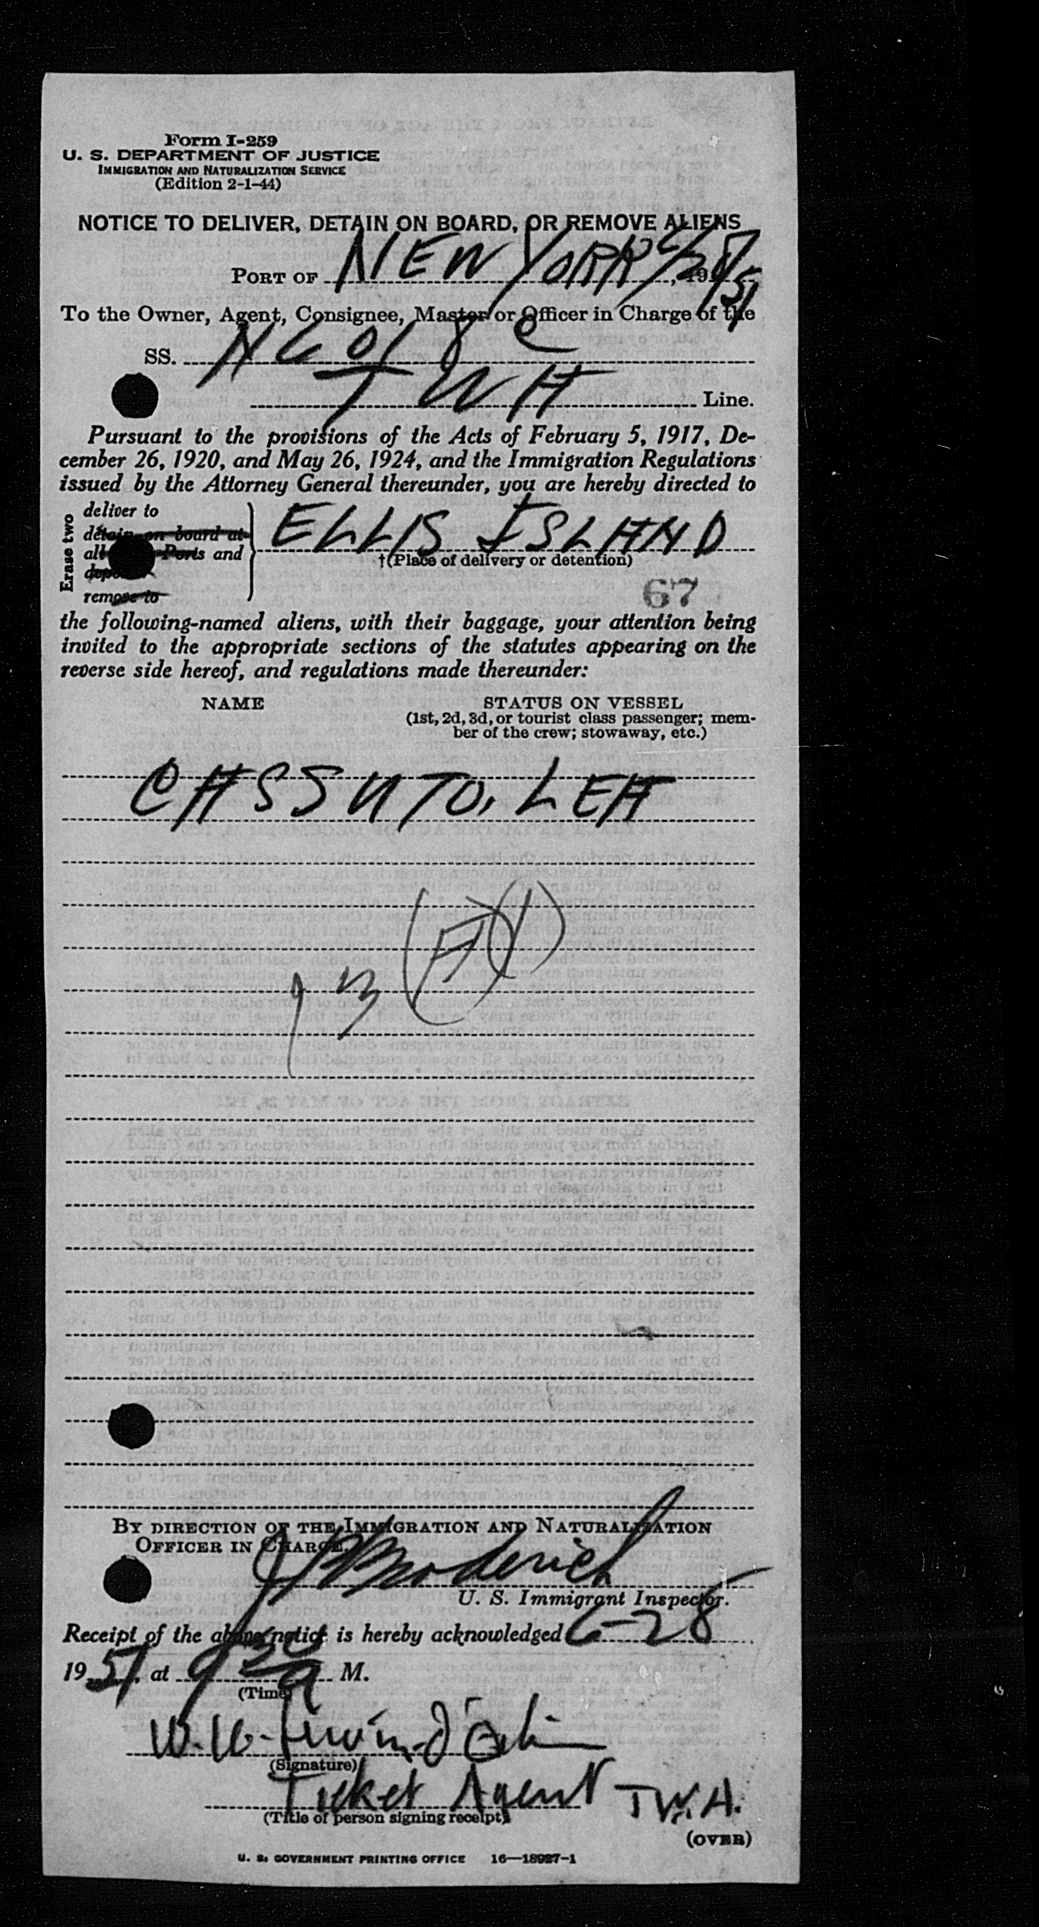 Form I-259
U. S. DEPARTMENT OF JUSTICE
IMMIGRATION AND NATURALIZATION SERVICE
(Edition 2-1-44)
NOTICE TO DELIVER, DETAIN ON BOARD, OR REMOVE ALIENS
PORT OF NEW YORK 6/28/51, 19
To the Owner, Agent, Consignee, Master or Officer in Charge of the
SS. N6018C
TWA Line.
Pursuant to the provisions of the Acts of February 5, 1917, De-
cember 26, 1920, and May 26, 1924, and the Immigration Regulations
issued by the Attorney General thereunder, you are hereby directed to
Erase two
deliver to
detain on board at
all Ports and
remove to
ELLIS ISLAND
†(Place of delivery or detention)
67
the following-named aliens, with their baggage, your attention being
invited to the appropriate sections of the statutes appearing on the
reverse side hereof, and regulations made thereunder:
NAME STATUS ON VESSEL
(1st, 2d, 3d, or tourist class passenger; mem-
ber of the crew; stowaway, etc.)
CASSUTO, LEA
BY DIRECTION OF THE IMMIGRATION AND NATURALIZATION
OFFICER IN CHARGE.
Broderick
U. S. Immigrant Inspector.
Receipt of the above notice is hereby acknowledged 6-28
1951 at 9 30 A M.
(Time)
(Signature)
Ticket Agent T.W.A.
(Title of person signing receipt)
(OVER)
U. S. GOVERNMENT PRINTING OFFICE 16—18927-1